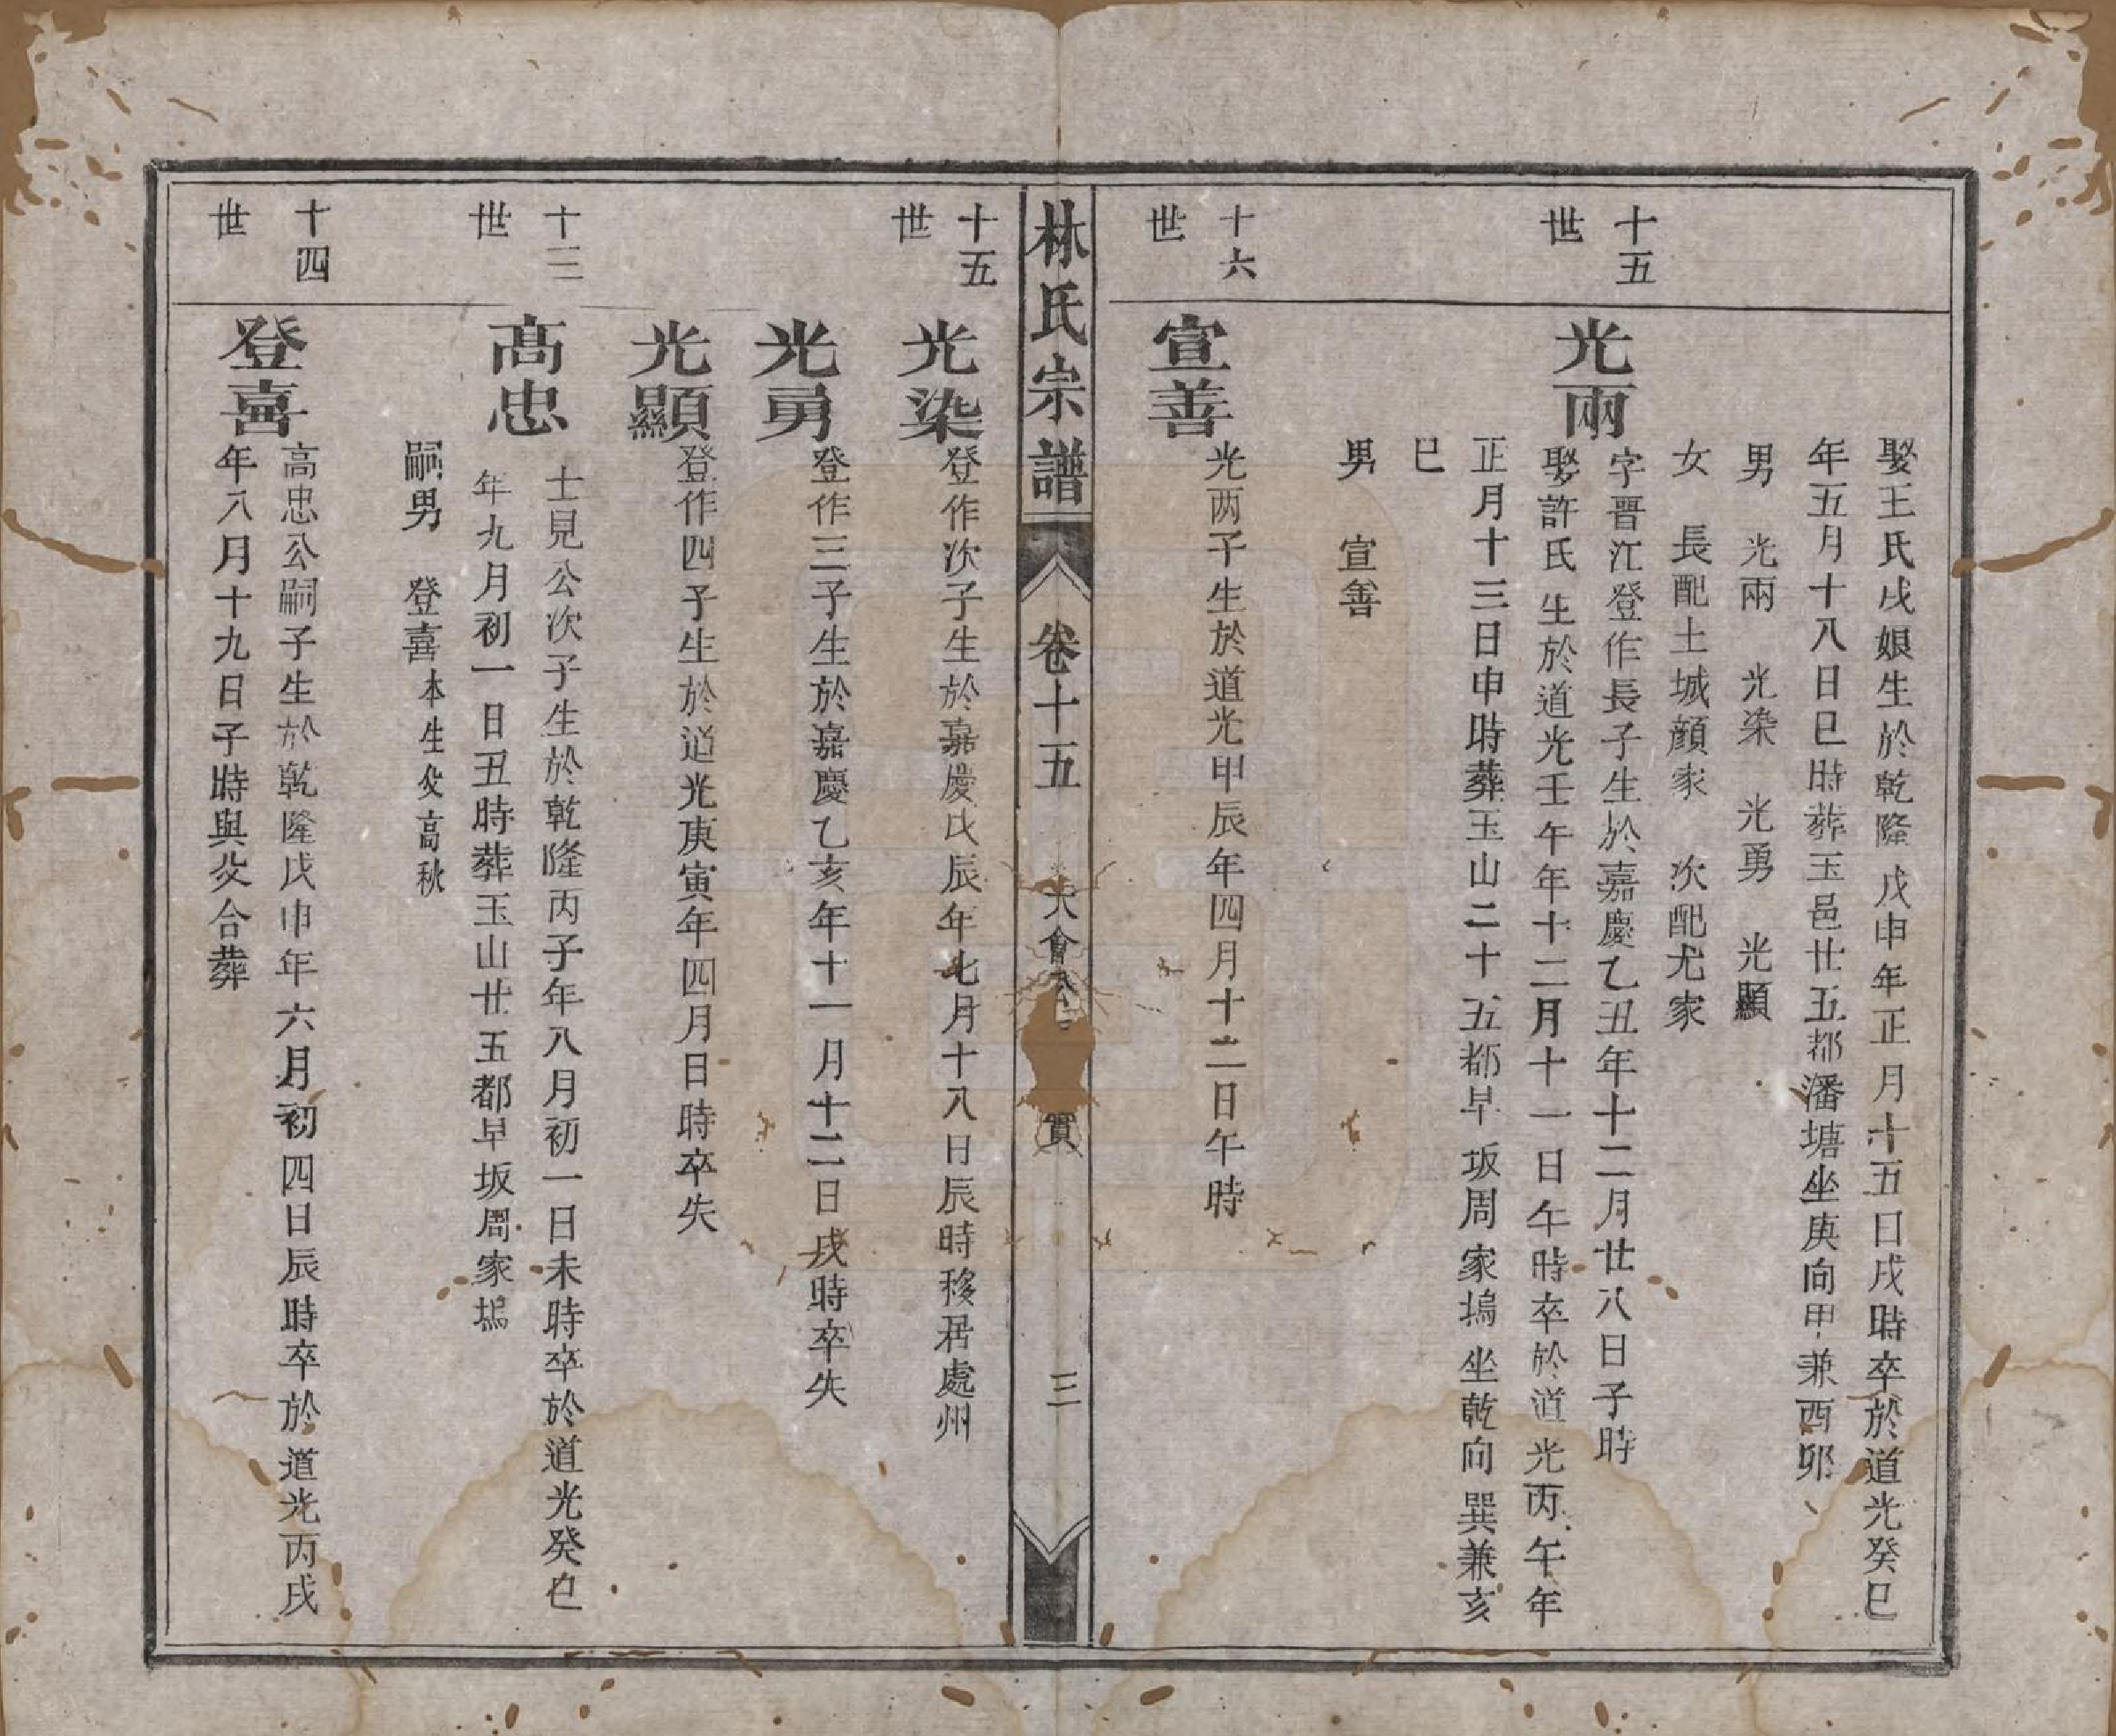 娶王氏戌娘生於乾隆戊申年正月十五日戌時卒於道光癸巳
年五月十八日巳時葬玉邑廿五都潘塘坐庚向甲兼酉卯
男 光兩 光染 光勇 光顯
女 長配土城顔家 次配尤家
十五世
光兩
字晋江登作長子生於嘉慶乙丑年十二月廿八日子時
娶許氏生於道光壬午年十二月十一日午時卒於道光丙午年
正月十三日申時葬玉山二十五都早坂周家塢坐乾向巽兼亥
巳
男 宣善
十六世
宣善
光两子生於道光甲辰年四月十二日午時
林氏宗譜 卷十五 大會 實 三
十五世
光染
登作次子生於嘉慶戊辰年七月十八日辰時移居處州
光勇
登作三子生於嘉慶乙亥年十一月十二日戌時卒失
光顯
登作四子生於道光庚寅年四月日時卒失
十三世
高忠
士見公次子生於乾隆丙子年八月初一日未時卒於道光癸巳
年九月初一日丑時葬玉山廿五都早坂周家塢
嗣男 登喜本生父高秋
十四世
登喜
高忠公嗣子生於乾隆戊申年六月初四日辰時卒於道光丙戌
年八月十九日子時與父合葬